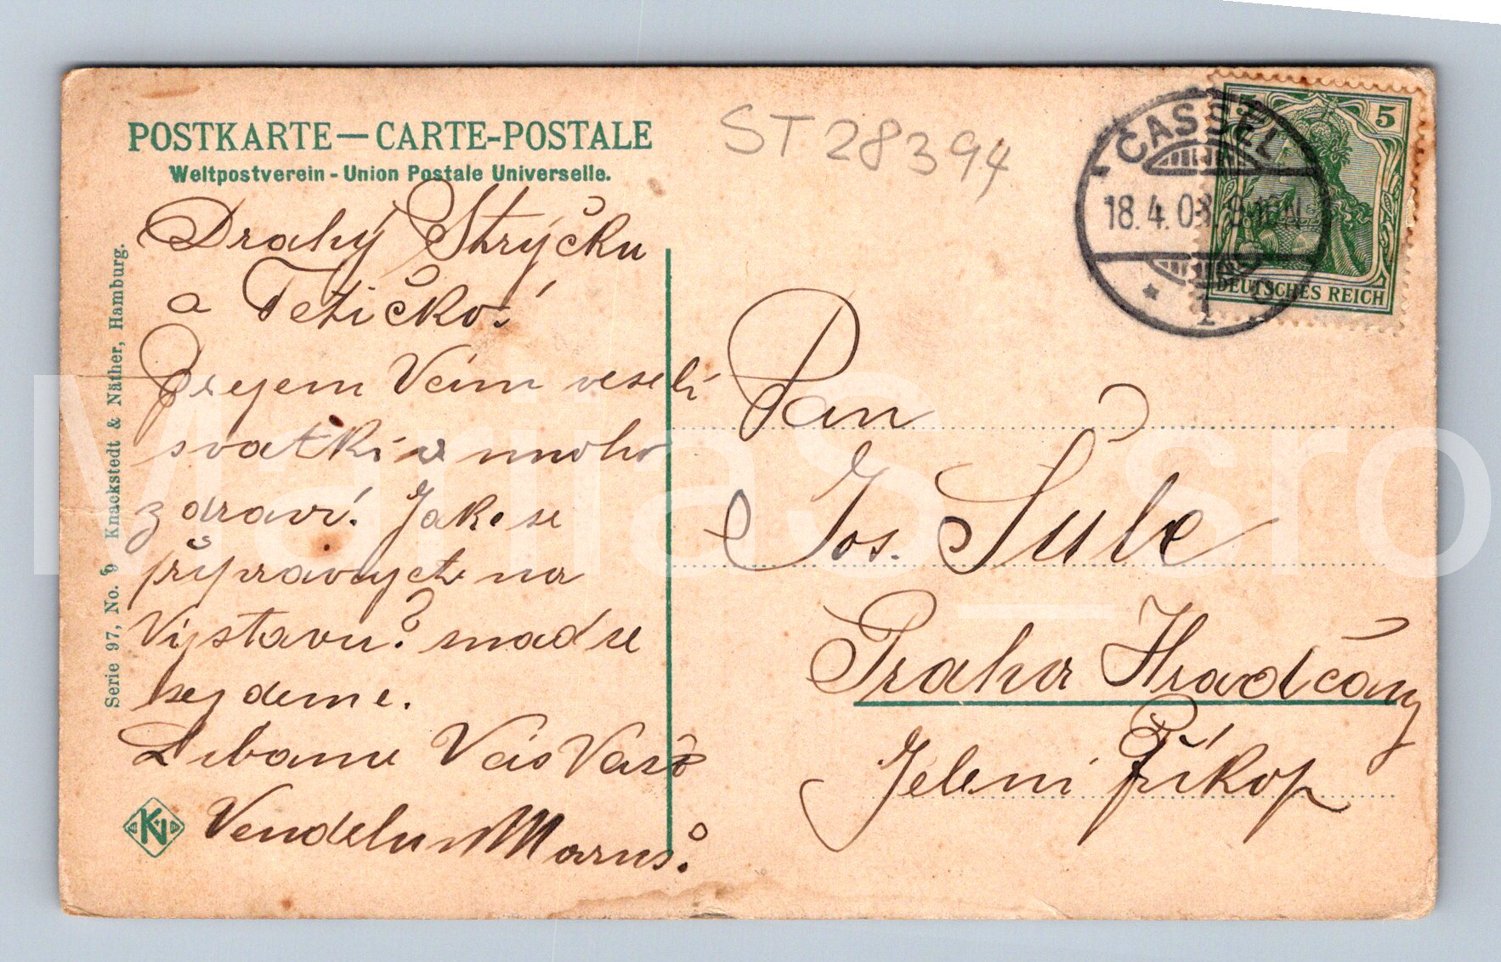 POSTKARTE — CARTE-POSTALE
Weltpostverein - Union Postale Universelle.
ST 28394
CASSEL
18.4.08. 9-10N
1
5
DEUTSCHES REICH
Drahý Strýčku
a Tetičko!
Przejem Vám veselí
svatki a mnoho
zdraví. Jak se
připravujete na
Výstavu? snad se
sejdeme.
Libame Vás Vaši
Vendelin Maruš.
Pan
Jos. Šulc
Praha Hradčany
Jeleni Příkop
Serie 97, No. 9 Knackstedt & Näther, Hamburg.
KN
MarijaS_sro